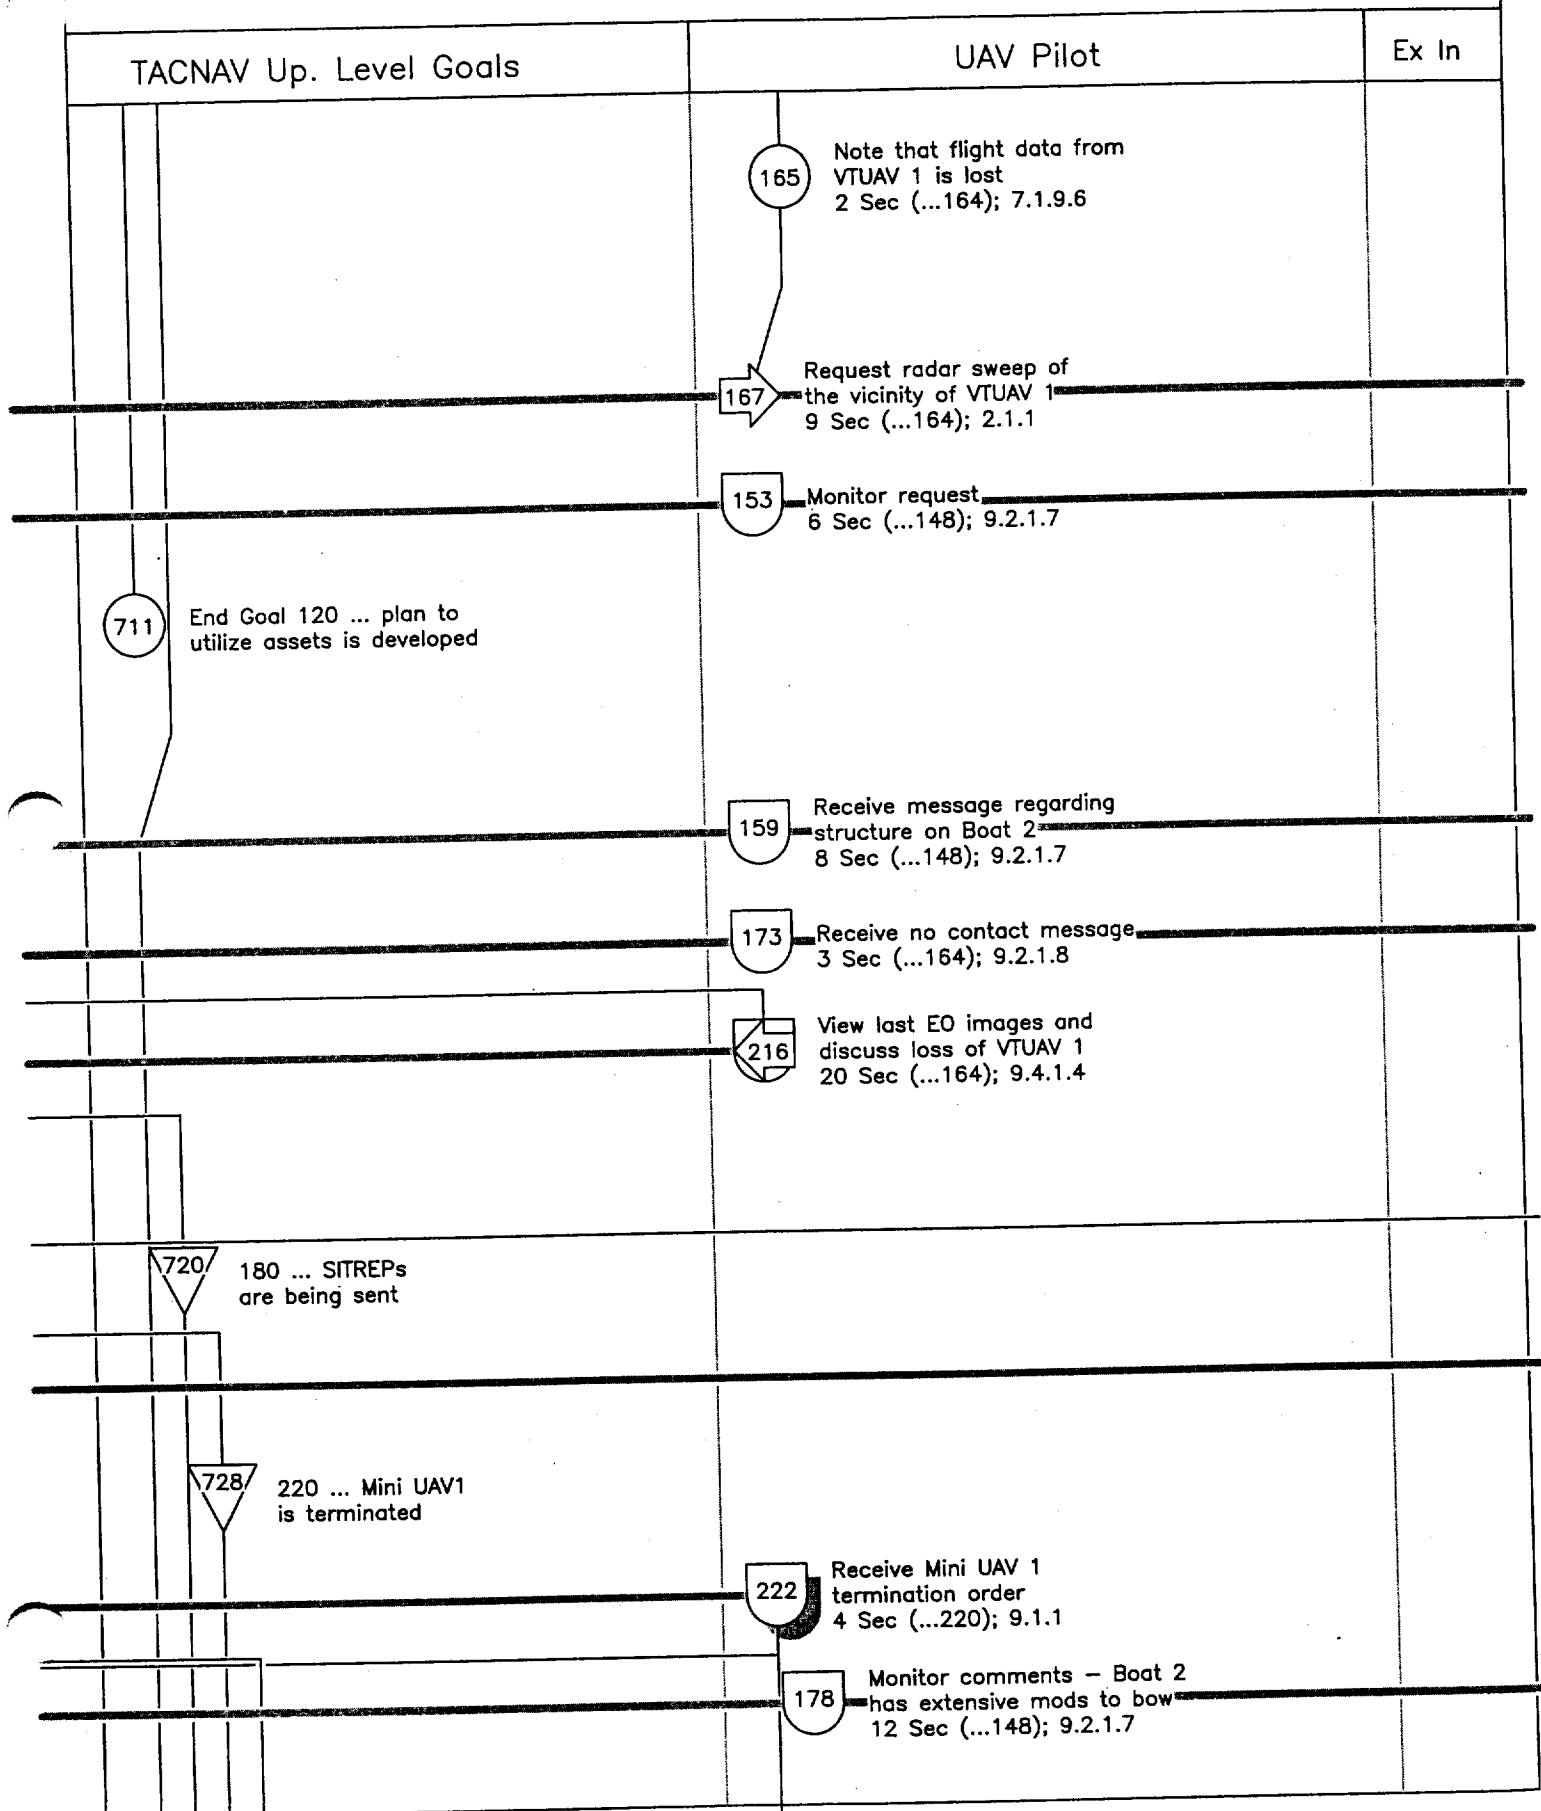 TACNAV Up. Level Goals
UAV Pilot
Ex In
165
Note that flight data from
VTUAV 1 is lost
2 Sec (...164); 7.1.9.6
167
Request radar sweep of
the vicinity of VTUAV 1
9 Sec (...164); 2.1.1
153
Monitor request
6 Sec (...148); 9.2.1.7
711
End Goal 120 ... plan to
utilize assets is developed
159
Receive message regarding
structure on Boat 2
8 Sec (...148); 9.2.1.7
173
Receive no contact message
3 Sec (...164); 9.2.1.8
216
View last EO images and
discuss loss of VTUAV 1
20 Sec (...164); 9.4.1.4
720
180 ... SITREPs
are being sent
728
220 ... Mini UAV1
is terminated
222
Receive Mini UAV 1
termination order
4 Sec (...220); 9.1.1
178
Monitor comments – Boat 2
has extensive mods to bow
12 Sec (...148); 9.2.1.7